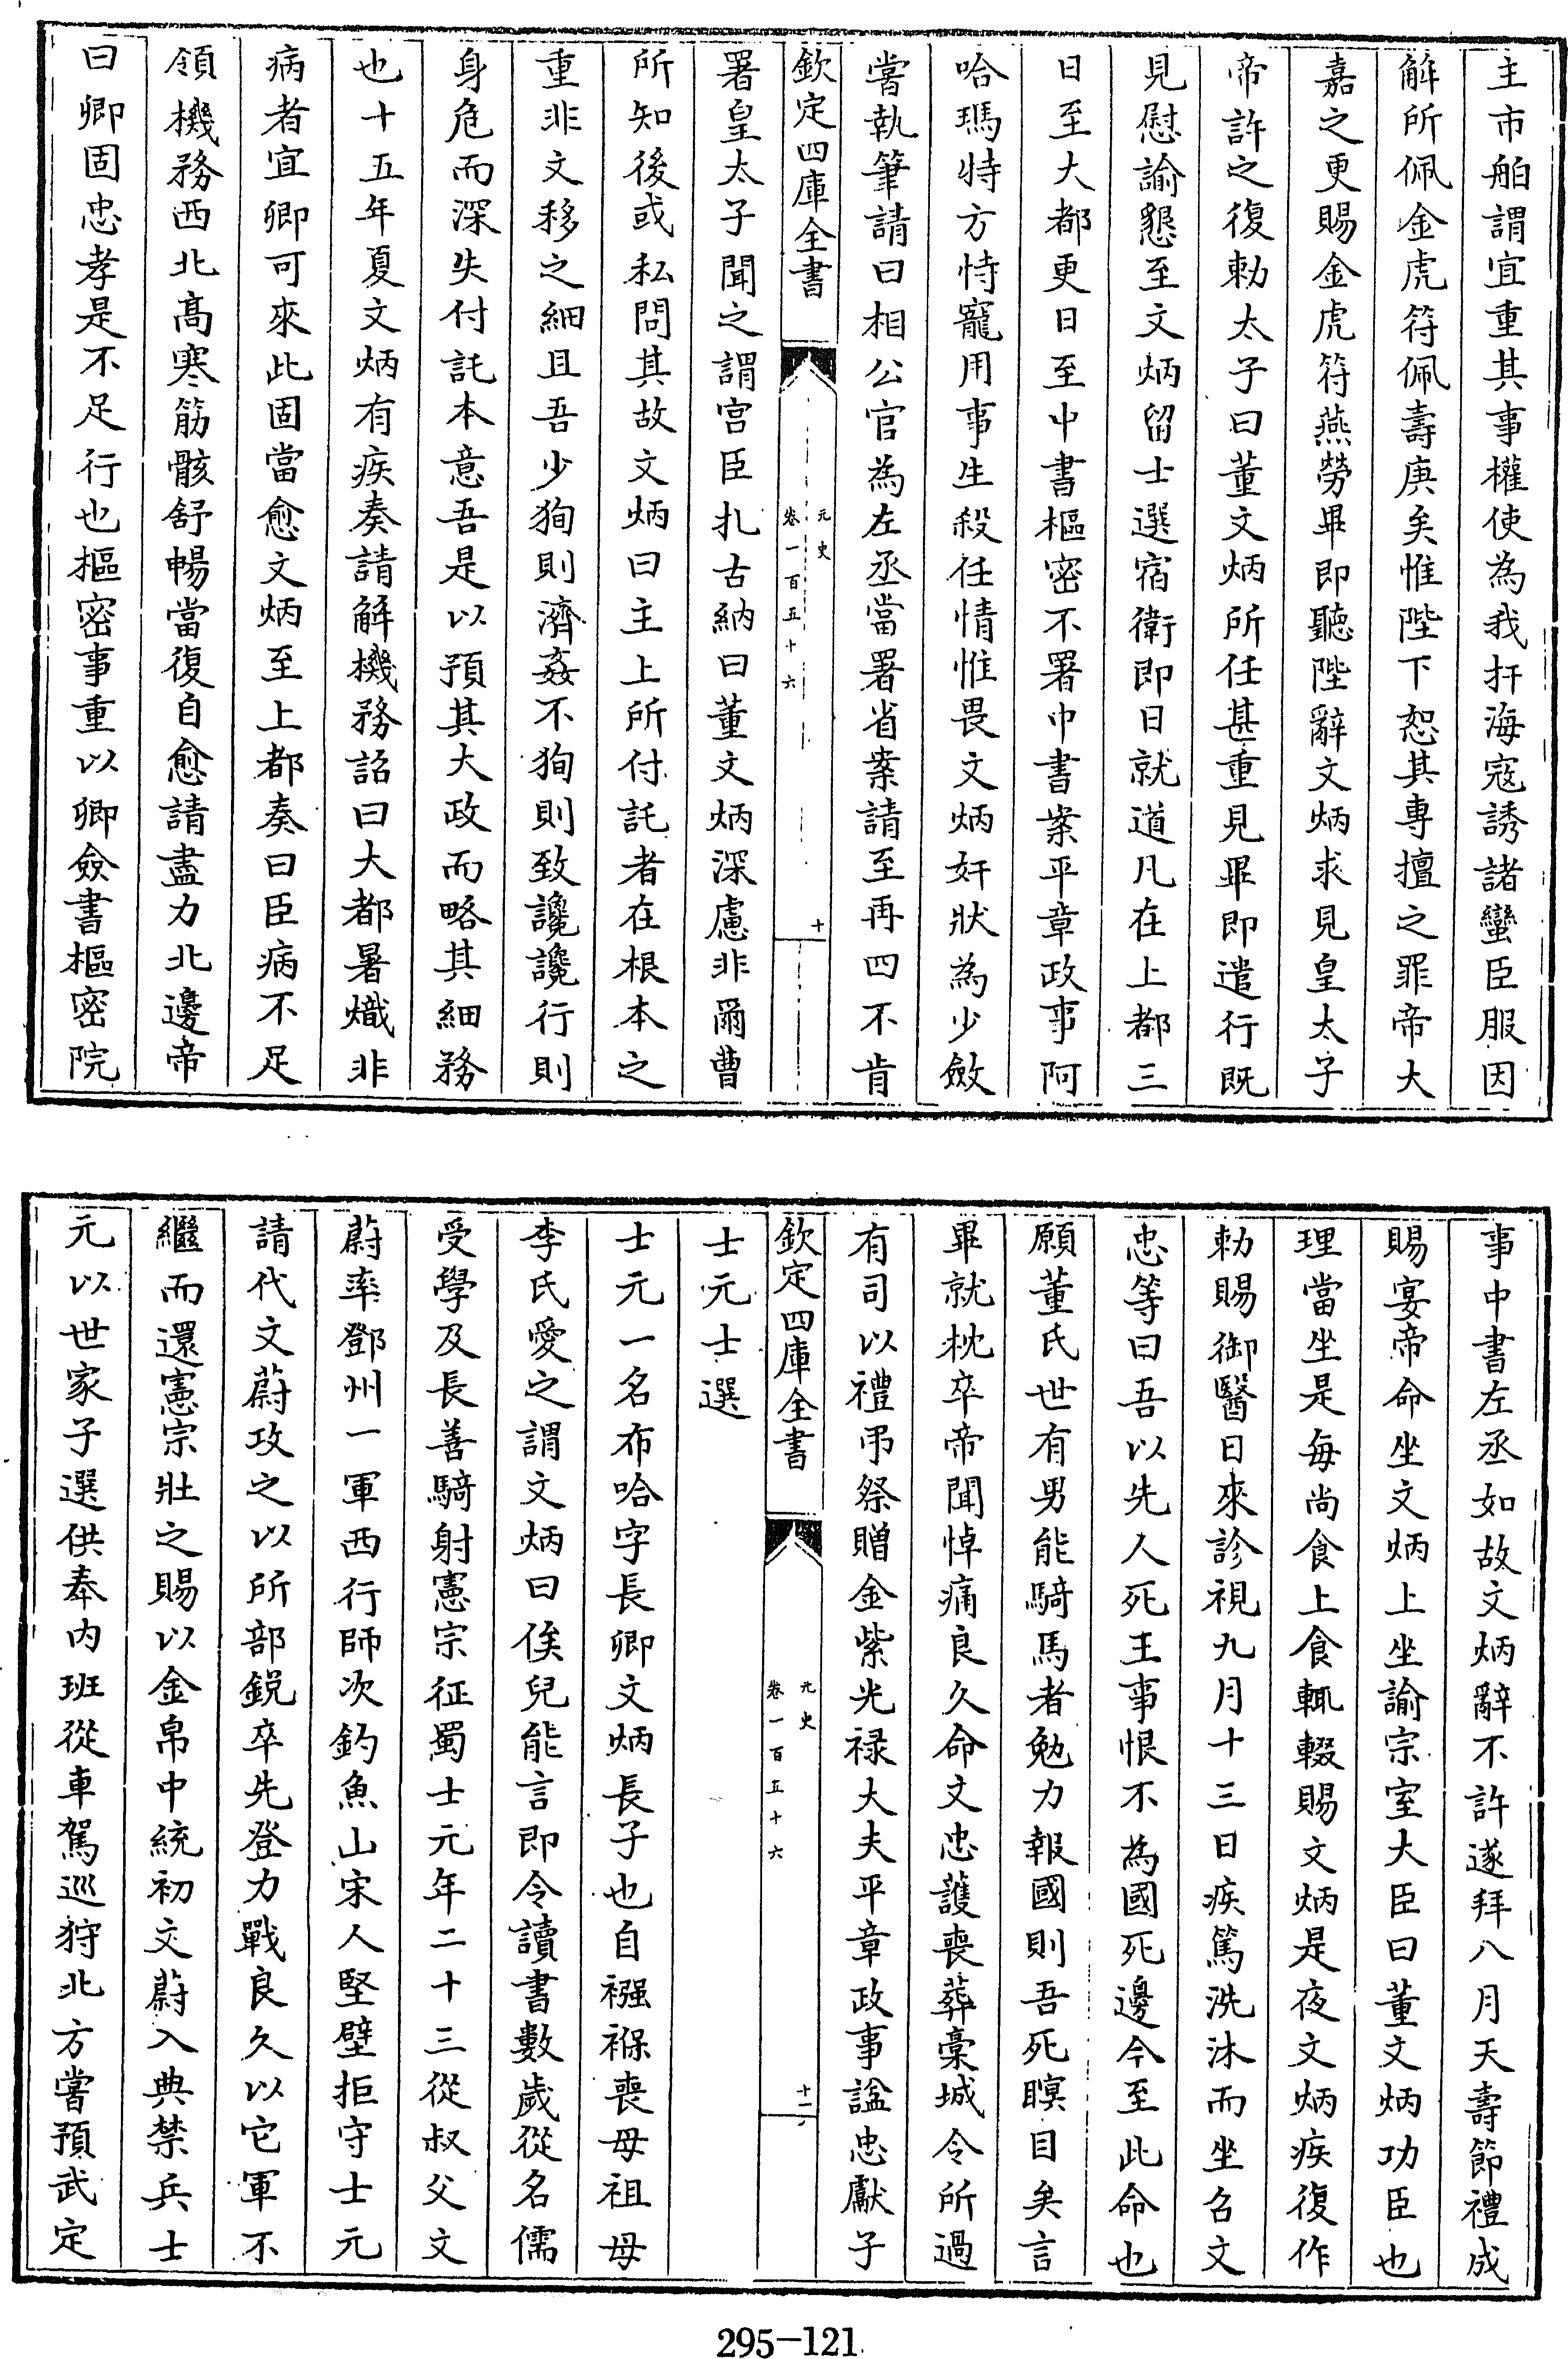 主市舶謂宜重其事權使為我扞海寇誘諸蠻臣服因
解所佩金虎符佩壽庚矣惟陛下恕其專擅之罪帝大
嘉之更賜金虎符燕勞畢即聽陛辭文炳求見皇太子
帝許之復勅太子曰董文炳所任甚重見畢即遣行既
見慰諭懇至文炳留士選宿衛即日就道凡在上都三
日至大都更日至中書樞密不署中書案平章政事阿
哈瑪特方恃寵用事生殺任情惟畏文炳奸狀為少斂
嘗執筆請曰相公官為左丞當署省案請至再四不肯
欽定四庫全書
元史
卷一百五十六
十
署皇太子聞之謂宮臣扎古納曰董文炳深慮非爾曹
所知後或私問其故文炳曰主上所付託者在根本之
重非文移之細且吾少狥則濟姦不狥則致讒讒行則
身危而深失付託本意吾是以預其大政而略其細務
也十五年夏文炳有疾奏請解機務詔曰大都暑熾非
病者宜卿可來此固當愈文炳至上都奏曰臣病不足
領機務西北高寒筋骸舒暢當復自愈請盡力北邊帝
曰卿固忠孝是不足行也樞密事重以卿僉書樞密院
事中書左丞如故文炳辭不許遂拜八月天壽節禮成
賜宴帝命坐文炳上坐諭宗室大臣曰董文炳功臣也
理當坐是每尚食上食輒輟賜文炳是夜文炳疾復作
勅賜御醫日來診視九月十三日疾篤洗沐而坐召文
忠等曰吾以先人死王事恨不為國死邊今至此命也
願董氏世有男能騎馬者勉力報國則吾死瞑目矣言
畢就枕卒帝聞悼痛良久命文忠護喪葬稾城令所過
有司以禮弔祭贈金紫光禄大夫平章政事諡忠獻子
欽定四庫全書
元史
卷一百五十六
十一
士元士選
士元一名布哈字長卿文炳長子也自襁褓喪母祖母
李氏愛之謂文炳曰俟兒能言即令讀書數歲從名儒
受學及長善騎射憲宗征蜀士元年二十三從叔父文
蔚率鄧州一軍西行師次釣魚山宋人堅壁拒守士元
請代文蔚攻之以所部銳卒先登力戰良久以它軍不
繼而還憲宗壯之賜以金帛中統初文蔚入典禁兵士
元以世家子選供奉内班從車駕巡狩北方嘗預武定
295-121